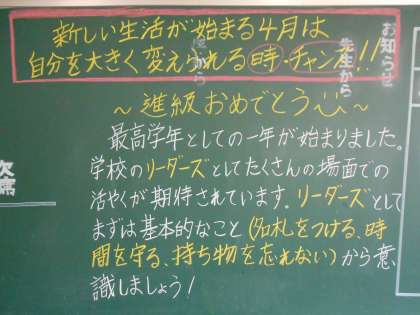 新しい生活が始まる4月は
自分を大きく変えられる時・チャンス!!
お知らせ
先生から
から
～進級おめでとう～
最高学年としての一年が始まりました。
学校のリーダーズとしてたくさんの場面での
活やくが期待されています。リーダーズとして
まずは基本的なこと(名札をつける、時
間を守る、持ち物を忘れない)から意
識しましょう!
席